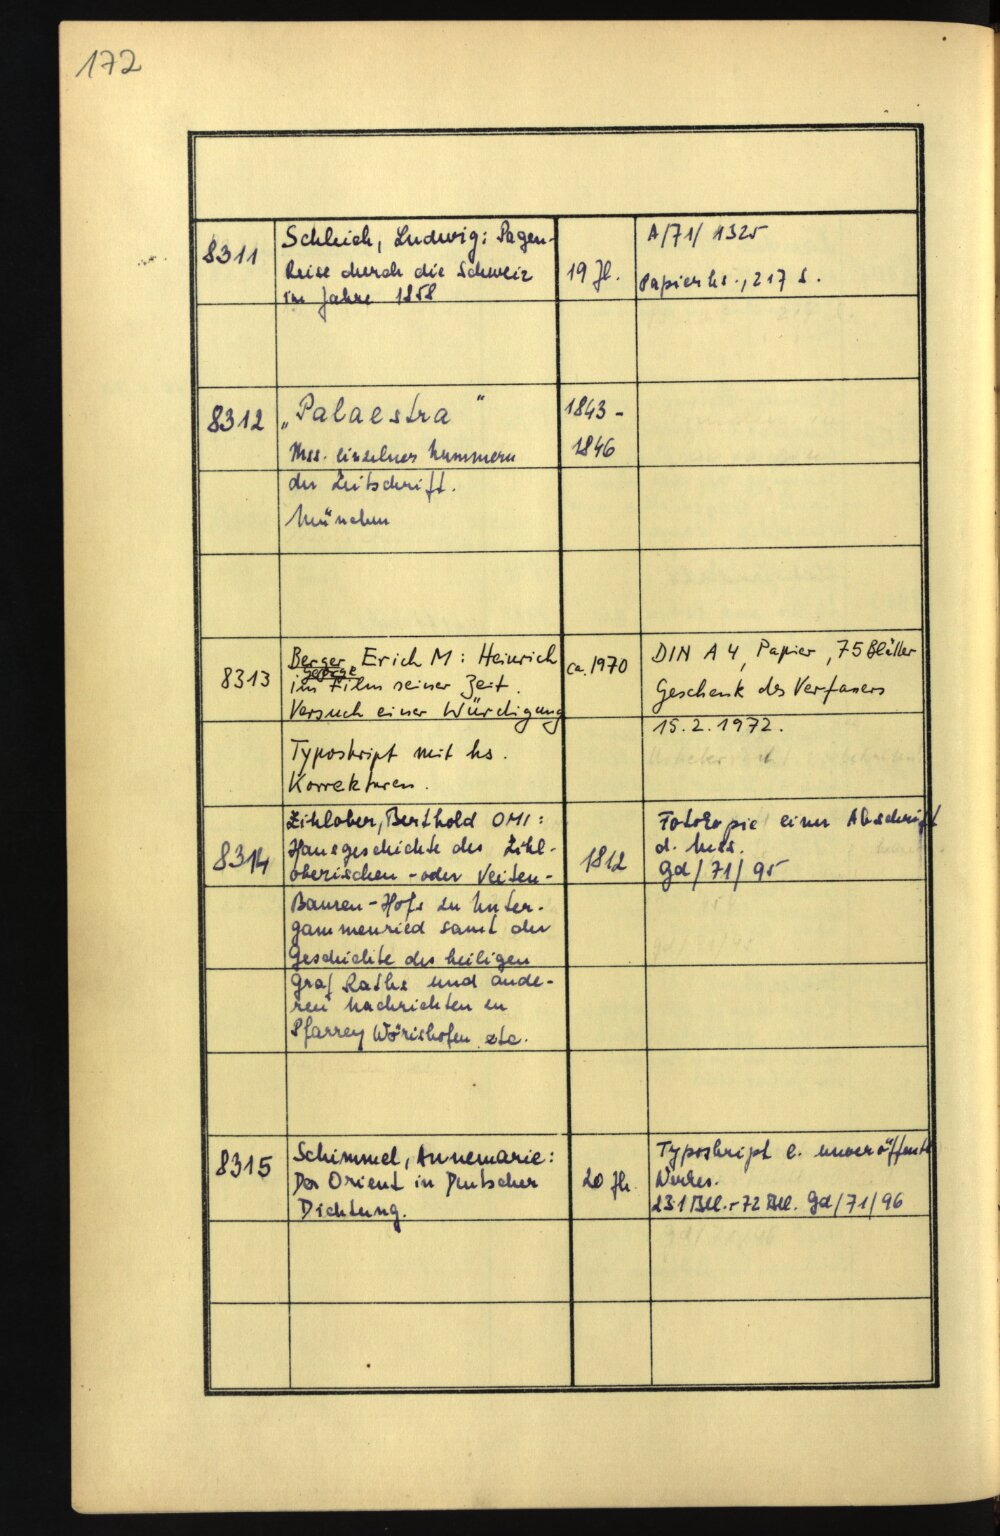 172
8311
Schleich, Ludwig: Pagen-
Reise durch die Schweiz
im Jahre 1858
19 Jh.
A/71/ 1325
Papierhs., 217 S.
8312
„Palaestra"
Mss. einzelner Nummern
der Zeitschrift.
München
1843 -
1846
8313
Berger, Erich M: Heinrich
George
im Film seiner Zeit.
Versuch einer Würdigung
Typoskript mit hs.
Korrekturen.
ca. 1970
DIN A 4, Papier, 75 Blätter
Geschenk des Verfassers
15.2.1972.
8314
Zihlober, Berthold OMI:
Hausgeschichte des Zihl-
oberischen - oder Veiten-
Bauren-Hofs zu Unter-
gammenried samt der
Geschichte des heiligen
Graf Raths und ande-
ren Nachrichten zu
Pfarrey Wörishofen etc.
1812
Fotokopie einer Abschrift
d. Mss.
Gd/71/95
8315
Schimmel, Annemarie:
Der Orient in Deutscher
Dichtung.
20 Jh.
Typoskript e. unveröffentl.
Werkes.
231 Bll. + 72 Bll. Gd/71/96